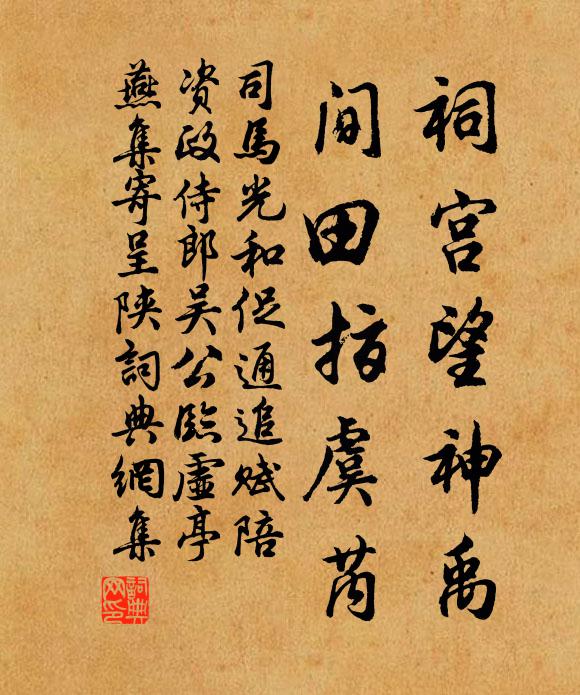 祠宫望神禹
间田指虞芮
司馬光和促通追赋陪
资政侍郎吴公臨虚亭
燕集寄呈陕詞典網集
詞典
网印